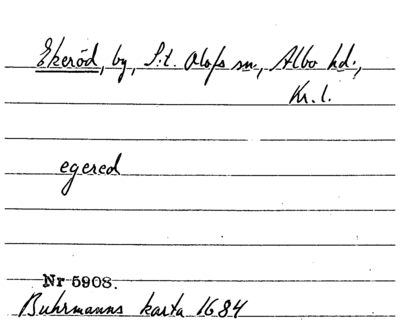 Ekeröd, by, S:t. Olofs sn., Albo hd.,
Kr. l.
egered
Nr 5908.
Buhrmanns karta 1684